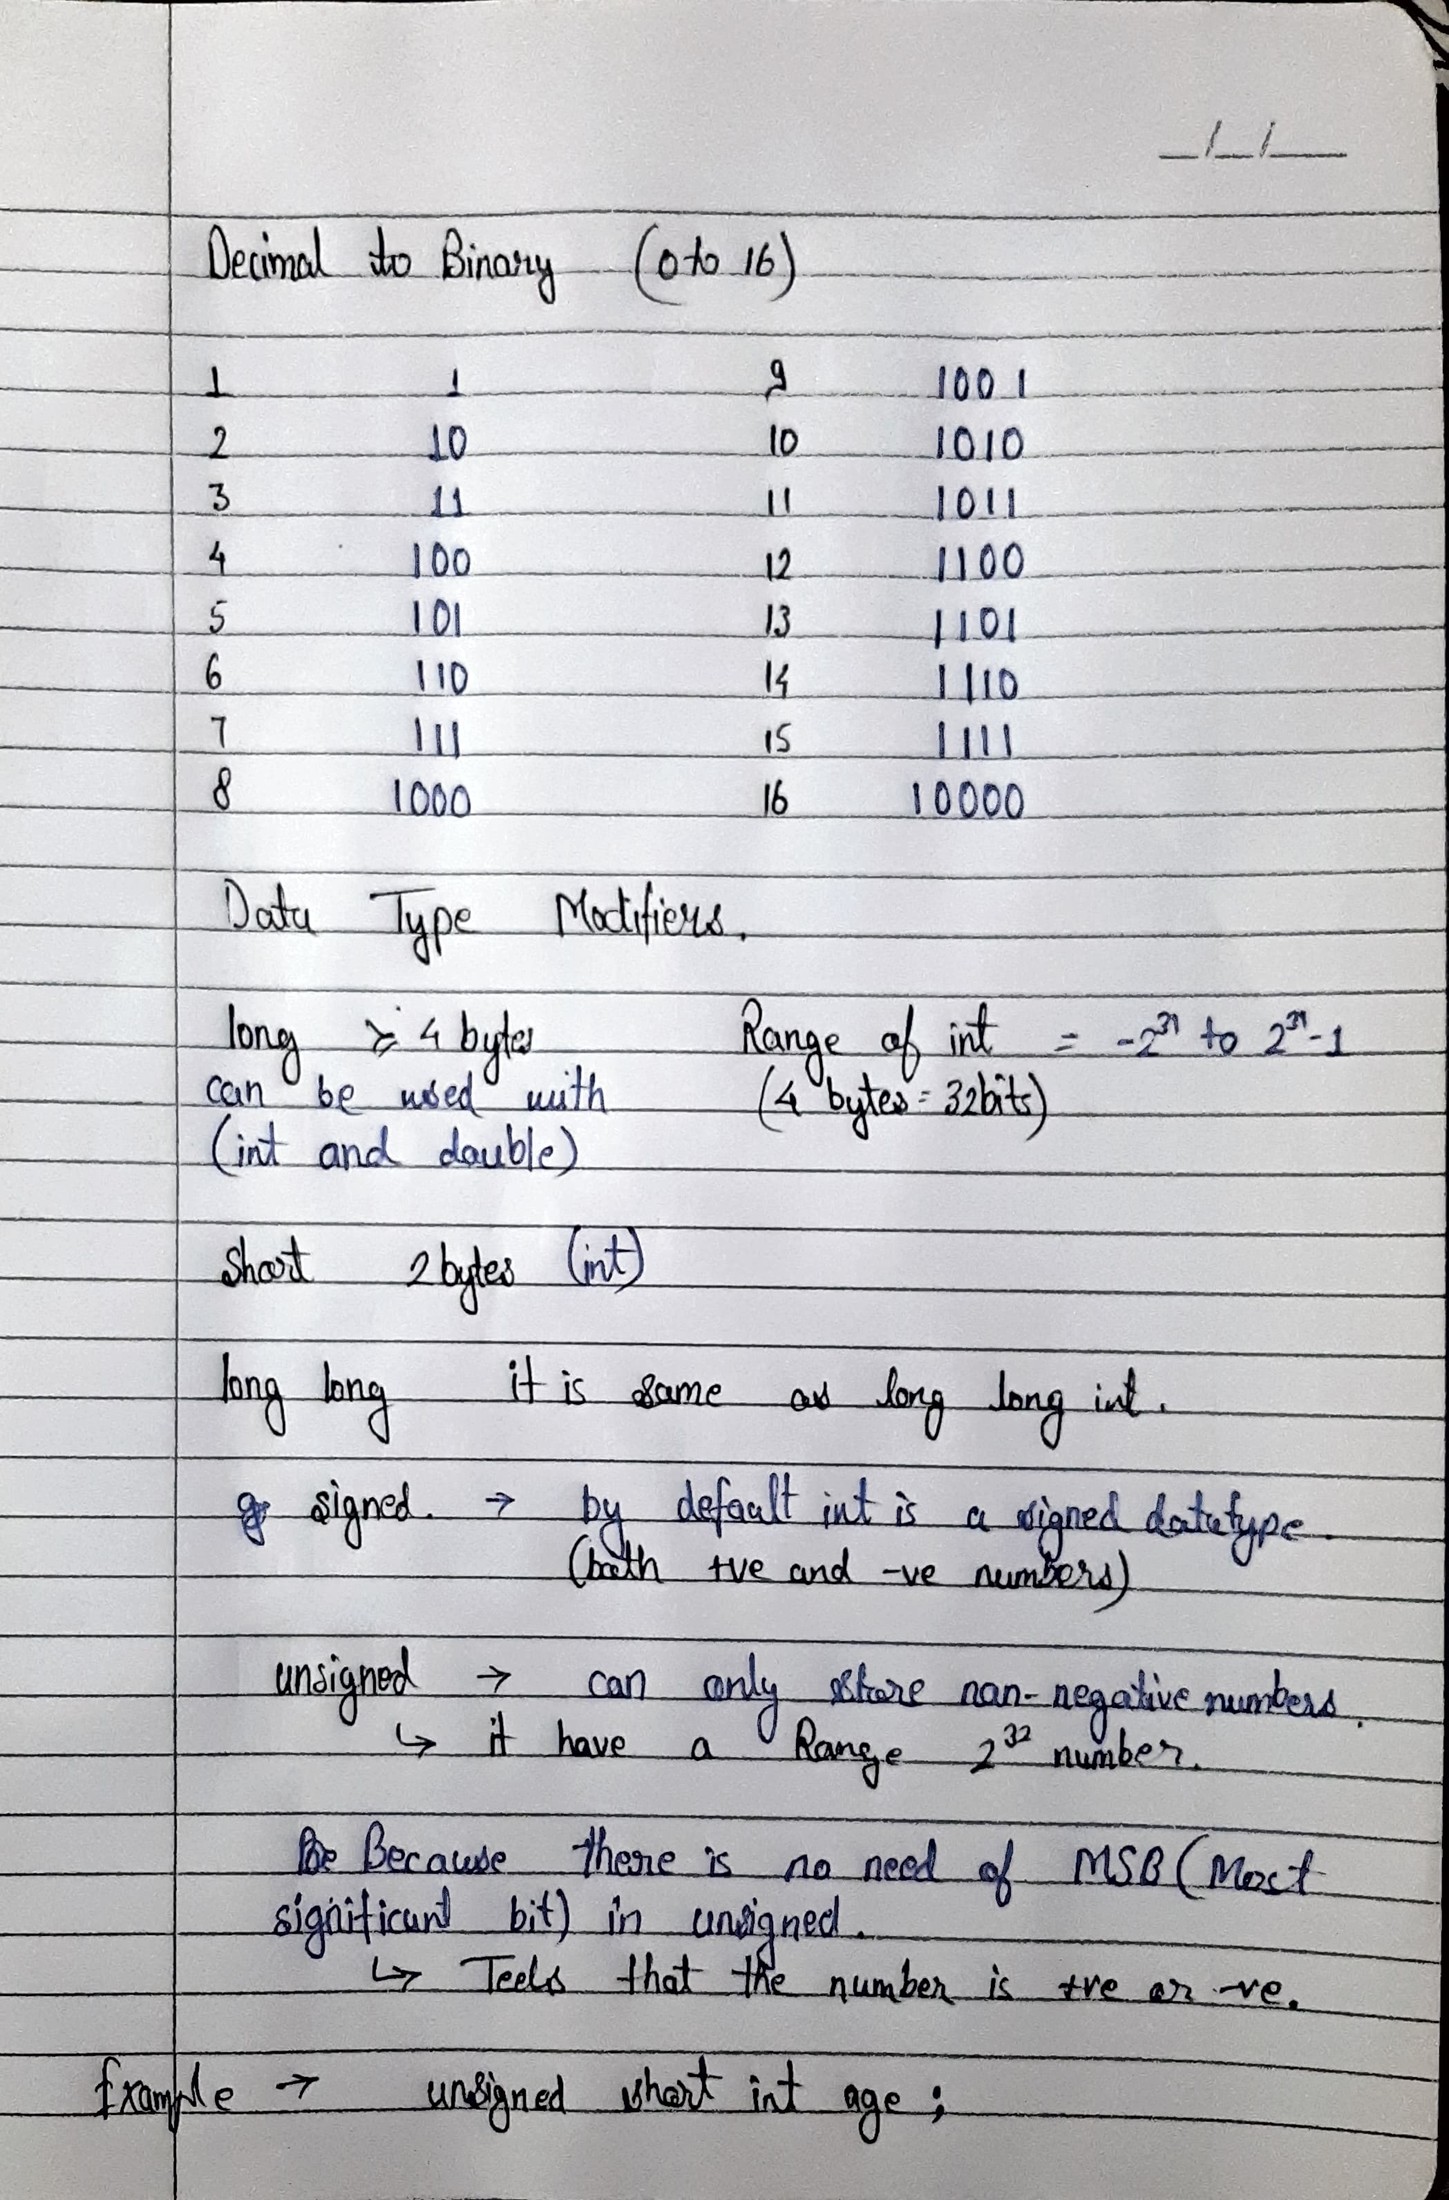 _/_/_
Decimal to Binary (0 to 16)
1 1 9 1001
2 10 10 1010
3 11 11 1011
4 100 12 1100
5 101 13 1101
6 110 14 1110
7 111 15 1111
8 1000 16 10000
Data Type Modifiers.
long ≥ 4 bytes Range of int = -2³¹ to 2³¹-1
can be used with (4 bytes = 32bits)
(int and double)
Short 2 bytes (int)
long long it is same as long long int.
signed. → by default int is a signed datatype.
(both +ve and -ve numbers)
unsigned → can only store non-negative numbers.
↳ it have a Range 2³² number.
Be Because there is no need of MSB (Most
significant bit) in unsigned.
↳ Teels that the number is +ve or -ve.
Example → unsigned short int age ;